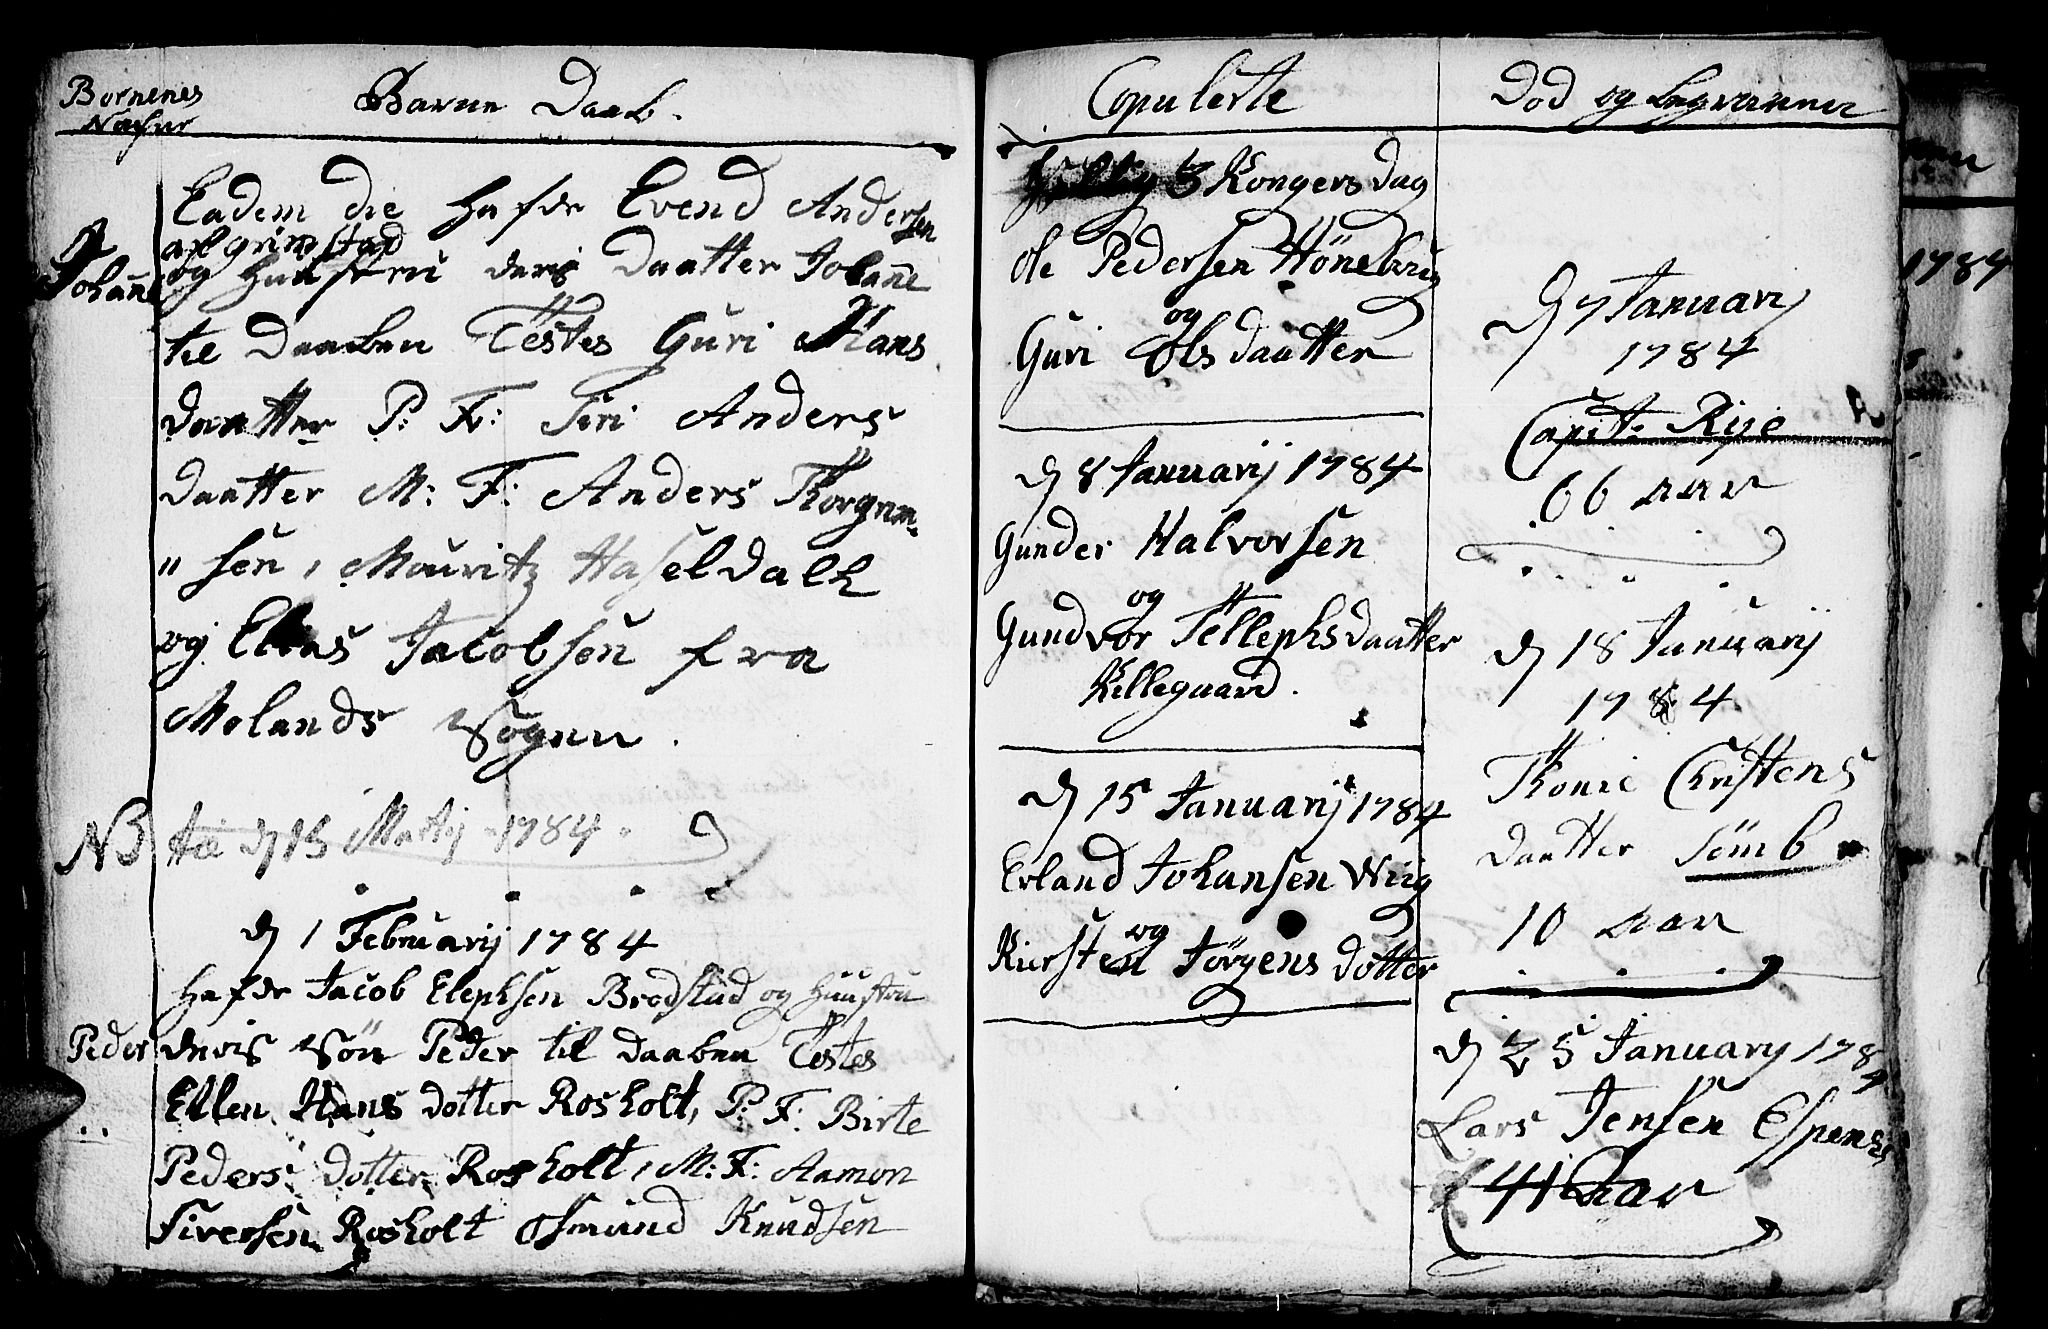 Børnenes
Nafne
Barne Daab.
Eadem die hafde Evend Andersen
af grimstad
Johane
og Huustru deris Daatter Johane
til Daaben Testes Guri Hans
Daatter P: F: Siri Anders
Daatter M: F: Anders Thorgrim
" sen, Mouritz Haseldalh
og Elias Jacobsen fra
Molands Sogne.
NB
d 15 Martij 1784.
d 1 Februarij 1784
Hafde Jacob Elephsen Brodstad og Huustru
Peder
deris Søn Peder til Daaben Testes
Ellen Hans dotter Rosholt, P: F: Birte
Peders dotter Rosholt, M: F: Aamon
Siversen Rosholt Osmund Knudsen
Copulerte
3 Kongers Dag
Ole Pedersen Hönebrig
og
Guri Ols Daatter
d 8 Januarij 1784
Gunder Halvorsen
og
Gundvor Tellephsdaatter
Killegaard.
d 15 Januarij 1784
Erland Johansen Wiig
og
Kiersten Jörgens dotter
Dod og begravene
d 7 Januarij
1784
Capit: Riye
66 aar
d 18 Januarij
1784
Thonie Christens
Daatter Sömb
10 aar
d 25 Januarij 1784
Lars Jensen Espenes
41 aar
1784